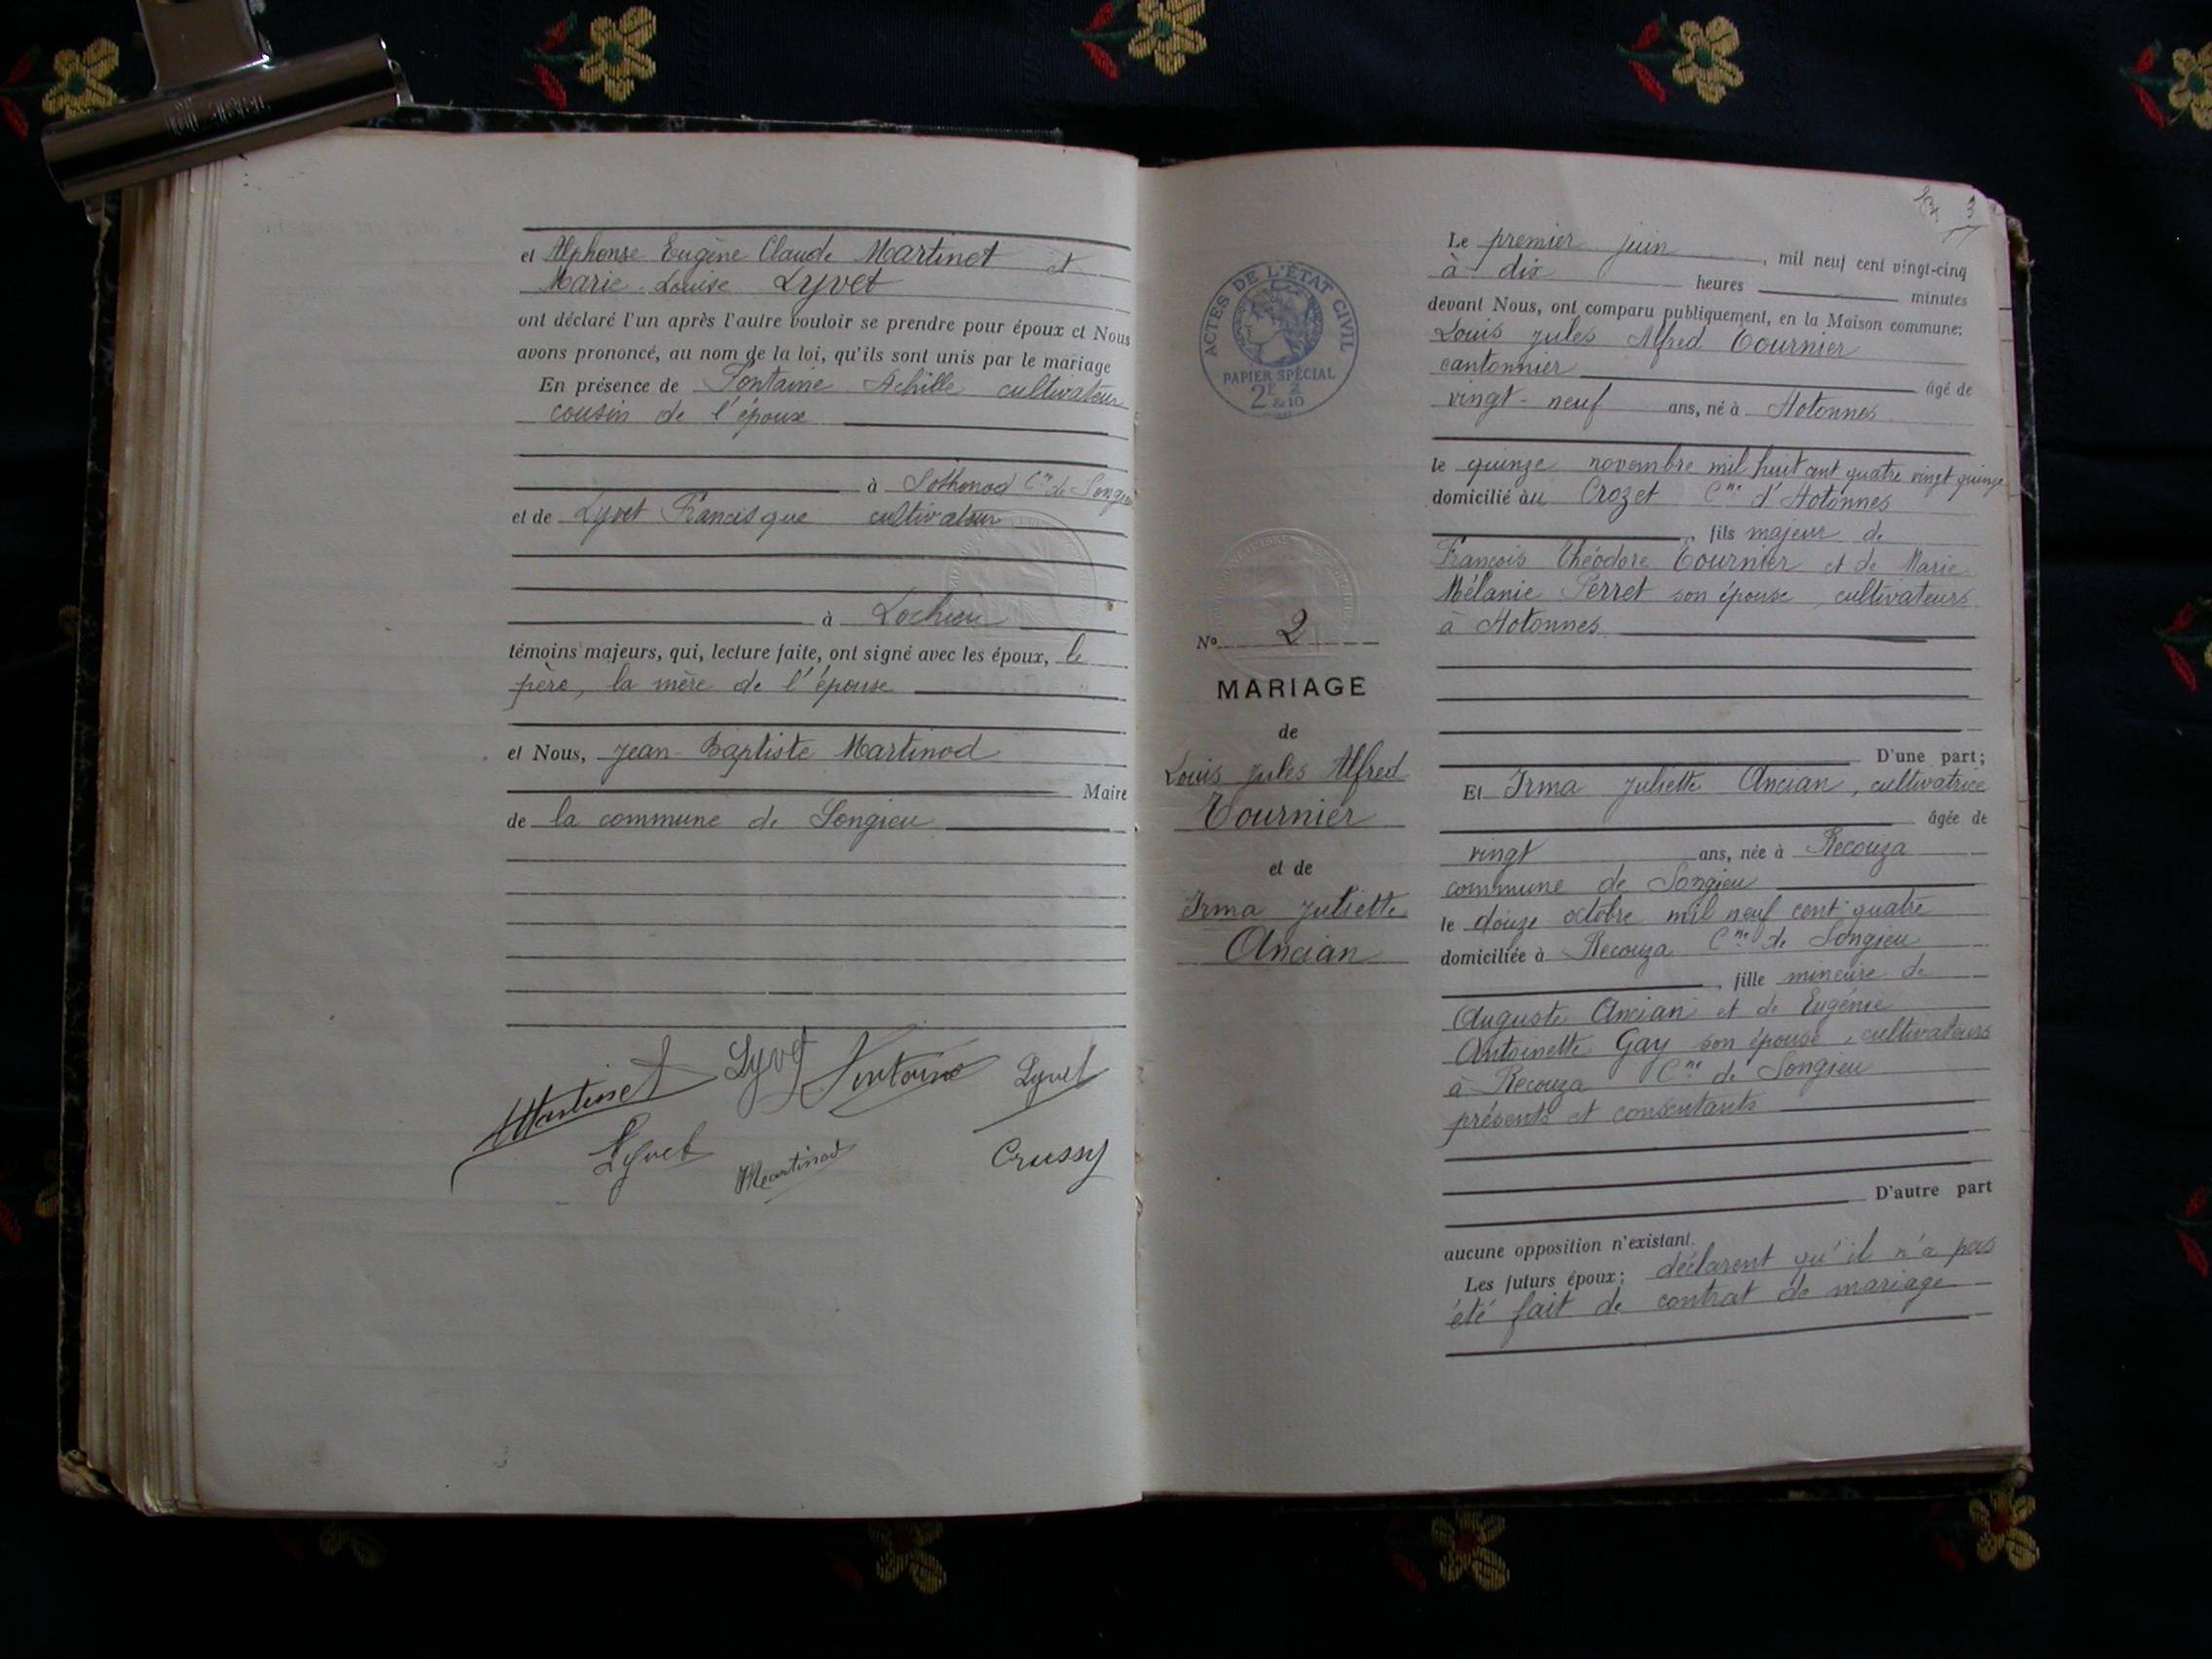 et Alphonse Eugène Claude Martinet et
Marie-Louise Lyvet
ont déclaré l'un après l'autre vouloir se prendre pour époux et Nous
avons prononcé, au nom de la loi, qu'ils sont unis par le mariage
En présence de Fontaine Achille cultivateur
cousin de l'époux
à Sothonod Cne de Songieu
et de Lyvet Francisque cultivateur
à Lochieu
témoins majeurs, qui, lecture faite, ont signé avec les époux, le
père, la mère de l'épouse
et Nous, Jean-Baptiste Martinod
Maire
de la commune de Songieu
Martinet Lyvet Fontaine Lyvet
Lyvet Martinod Crussy
3
ACTES DE L'ÉTAT CIVIL
PAPIER SPÉCIAL
2F &
2/10
No 2
MARIAGE
de
Louis Jules Alfred
Tournier
et de
Irma Juliette
Ancian
Le premier juin, mil neuf cent vingt-cinq
à dix heures minutes
devant Nous, ont comparu publiquement, en la Maison commune:
Louis Jules Alfred Tournier
cantonnier âgé de
vingt-neuf ans, né à Hotonnes
le quinze novembre mil huit cent quatre vingt quinze
domicilié àu Crozet Cne d'Hotonnes
, fils majeur de
François Théodore Tournier et de Marie
Mélanie Perret son épouse, cultivateurs
à Hotonnes
D'une part;
Et Irma Juliette Ancian, cultivatrice
âgée de
vingt ans, née à Recouza
commune de Songieu
le douze octobre mil neuf cent quatre
domiciliée à Recouza Cne de Songieu
, fille mineure de
Auguste Ancian et de Eugénie
Antoinette Gay son épouse, cultivateurs
à Recouza Cne de Songieu
présents et consentants
D'autre part
aucune opposition n'existant.
Les futurs époux; déclarent qu'il n'a pas
été fait de contrat de mariage